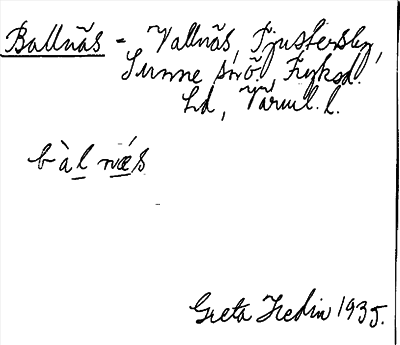 Ballnäs - Vallnäs, Tjustersby,
Sunne snö, Fryksd.
hd, Värml. l.
bàl næ´s
Greta Hedin 1935.